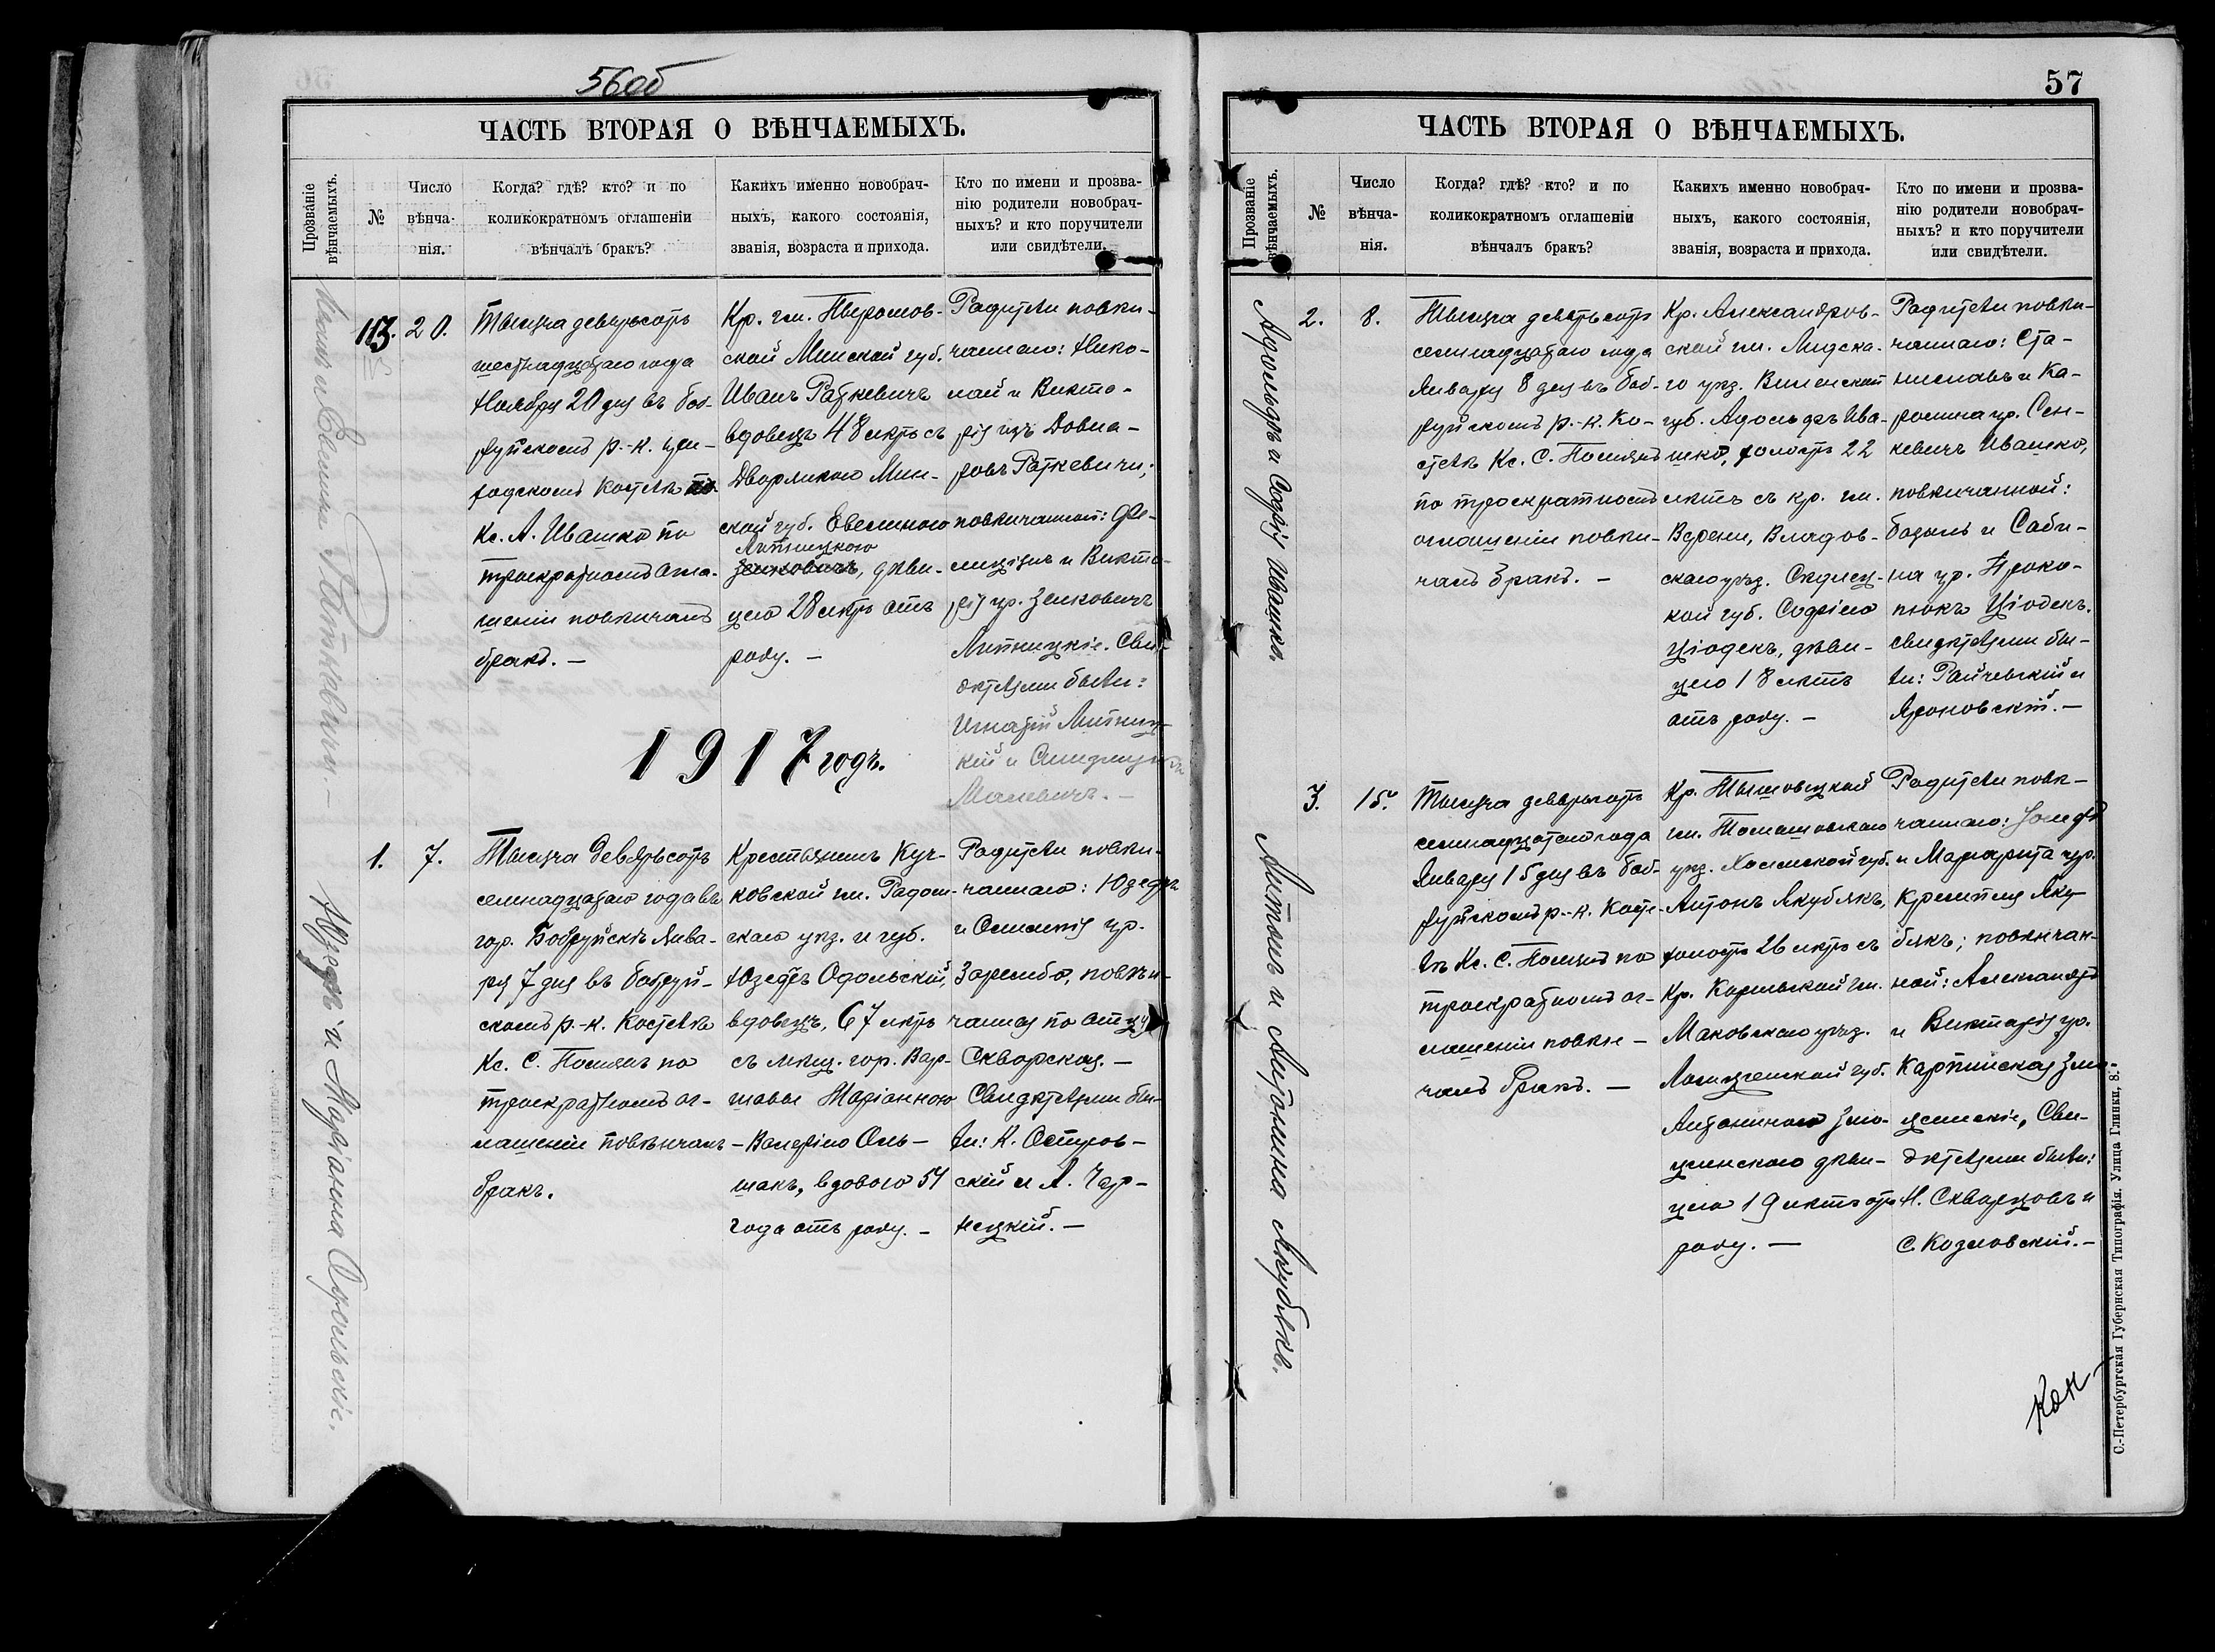 56об
ЧАСТЬ ВТОРАЯ О ВѢНЧАЕМЫХЪ.
Прозваніе вѣнчаемыхъ.
№
Число вѣнча-
нія.
Когда? гдѣ? кто? и по
коликократномъ оглашеніи
вѣнчалъ бракъ?
Какихъ именно новобрач-
ныхъ, какого состоянія,
званія, возраста и прихода.
Кто по имени и прозва-
нію родители новобрач-
ныхъ? и кто поручители
или свидѣтели.
Раткевичи.—
113.
20.
Тысяча девятьсотъ
шестнадцатаго года
Ноября 20 дня въ Боб-
руйскомъ р.-к. при-
ходскомъ Костелѣ
Кс. А. Ивашко по
троекратномъ огла-
шеніи повѣнчалъ
бракъ.—
Кр. гм.
ской Минской губ.
Иванъ Раткевичъ
вдовецъ 48 лѣтъ съ
Дворянкою Мин-
ской губ. Евелиною
Липницкою
Зенковичъ, дѣви-
цею 28 лѣтъ отъ
роду.—
Родители повѣн-
чаннаго: Нико-
лай и Викто-
рія изъ Довна-
ровъ Раткевичи;
повѣнчанной: Фе-
лиціянъ и Викто-
рія ур. Зенковичъ
Липницкіе. Сви-
дѣтелями были:
Игнатій Липниц-
кій и
Малевичъ.—
1917 годъ.
Юзефъ и Маріанна Одольскіе.
1.
7.
Тысяча девятьсотъ
семнадцатаго года въ
гор. Бобруйскѣ Янва-
ря 7 дня въ Бобруй-
скомъ р.-к. Костелѣ
Кс. С. по
троекратномъ ог-
лашеніи повѣнчалъ
бракъ.
Крестьянинъ Куч-
ковской гм. Радом-
скаго уѣз. и губ.
Юзефъ Одольскій,
вдовецъ, 67 лѣтъ
съ мѣщ. гор. Вар-
шавы Маріанною
-Валеріею Оль-
шакъ, вдовою 54
года отъ роду.—
Родители повѣн-
чаннаго: Юзефъ
и ур.
Заремба, повѣн-
чанная по отцу
Скворская.—
Свидѣтелями бы-
ли: К. Остров-
скій и А. Чар-
нецкій.—
57
ЧАСТЬ ВТОРАЯ О ВѢНЧАЕМЫХЪ.
Прозваніе вѣнчаемыхъ.
№
Число вѣнча-
нія.
Когда? гдѣ? кто? и по
коликократномъ оглашеніи
вѣнчалъ бракъ?
Какихъ именно новобрач-
ныхъ, какого состоянія,
званія, возраста и прихода.
Кто по имени и прозва-
нію родители новобрач-
ныхъ? и кто поручители
или свидѣтели.
Адольфъ и Софія Ивашко.
2.
8.
Тысяча девятьсотъ
семнадцатаго года
Января 8 дня въ Боб-
руйскомъ р.-к. Ко-
стелѣ Кс. С.
по троекратномъ
оглашеніи повѣн-
чалъ бракъ.—
Кр. Александров-
ской гм. Лидска-
го уѣз. Виленской
губ. Адольфъ Ива-
шко, холостъ 22
лѣтъ съ кр. гм.
Владов-
скаго уѣз. Сѣдлец-
кой губ. Софіею
Ціодекъ, дѣви-
цею 18 лѣтъ
отъ роду.—
Родители повѣн-
чаннаго: Ста-
ниславъ и Ка-
ролина ур. Сен-
кевичъ Ивашко,
повѣнчанной:
и Саби-
на ур. Проко-
пюкъ Ціодекъ.
Свидѣтелями бы-
ли: Райчевскій и
Яроновскій.—
Антонъ и Антонина Якубякъ.
3.
15.
Тысяча девятьсотъ
семнадцатаго года
Января 15 дня въ Боб-
руйскомъ р.-к. Косте-
лѣ Кс. С. по
троекратномъ ог-
лашеніи повѣн-
чалъ бракъ.—
Кр. Тышовецкой
гм. Томашовскаго
уѣз. Холмской губ.
Антонъ Якубякъ,
холостъ 26 лѣтъ съ
Кр. гм.
Маковскаго уѣзд.
Ломжинской губ.
Антониною
дѣви-
цею 19 лѣтъ отъ
роду.—
Родители повѣ-
чаннаго: Іосифъ
и Маргарита ур.
Яку-
бякъ; повѣнчан-
ной: Александръ
и Викторія ур.
Карпинская
Сви-
дѣтелями были:
Н. Скварцовъ и
С. Козловскій.—
Кон-
С.-Петербургская Губернская Типографія. Улица Глинки, 8.